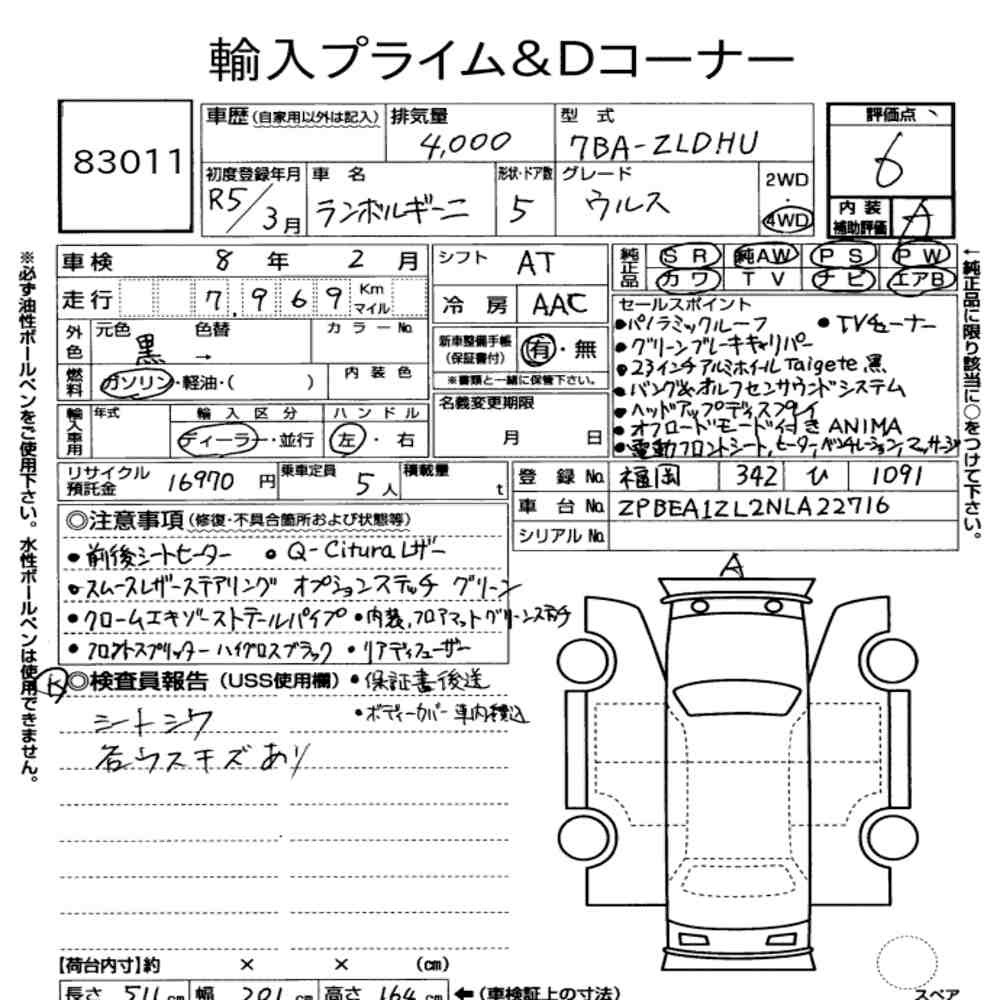 輸入プライム&Dコーナー
83011
車歴 (自家用以外は記入) 排気量 4,000 型式 7BA-ZLDHU
評価点 6
初度登録年月 R5/3月 車名 ランボルギーニ 形状・ドア数 5 グレード ウルス 2WD 4WD
内装補助評価 A
車検 8年 2月 シフト AT 純正品 SR 純AW PS PW
カワ TV ナビ エアB
走行 7,969 Km マイル 冷房 AAC
外色 元色 黒 色替 → カラーNo.
新車整備手帳(保証書付) 有・無
※書類と一緒に保管下さい。
燃料 ガソリン・軽油・( ) 内装色
名義変更期限 月 日
輸入車用 年式 輸入区分 ディーラー・並行 ハンドル 左・右
セールスポイント
●パノラミックルーフ ●TVチューナー
●グリーンブレーキキャリパー
●23インチアルミホイール Taigete 黒
●バング&オルフセンサウンドシステム
●ヘッドアップディスプレイ
●オフロードモード付き ANIMA
●電動フロントシート,ヒーター,ベンチレーション,マッサージ
リサイクル預託金 16970円 乗車定員 5人 積載量 t
登録No. 福岡 342 ひ 1091
車台No. ZPBEA1ZL2NLA22716
シリアルNo.
◎注意事項 (修復・不具合箇所および状態等)
●前後シートヒーター ●Q-Cituraレザー
●スムースレザーステアリング オプションステッチ グリーン
●クロームエキゾーストテールパイプ ●内装,フロアマットグリーンステッチ
●フロントスプリッター ハイグロスブラック ●リアディフューザー
◎検査員報告 (USS使用欄) ●保証書後送
●ボディーカバー 車内積込
シートシワ
各ウスキズあり
A
※必ず油性ボールペンをご使用下さい。水性ボールペンは使用できません。
←純正品に限り該当に○をつけて下さい。
【荷台内寸】約 × × (cm)
長さ 511cm 幅 201cm 高さ 164cm ←(車検証上の寸法)
スペア